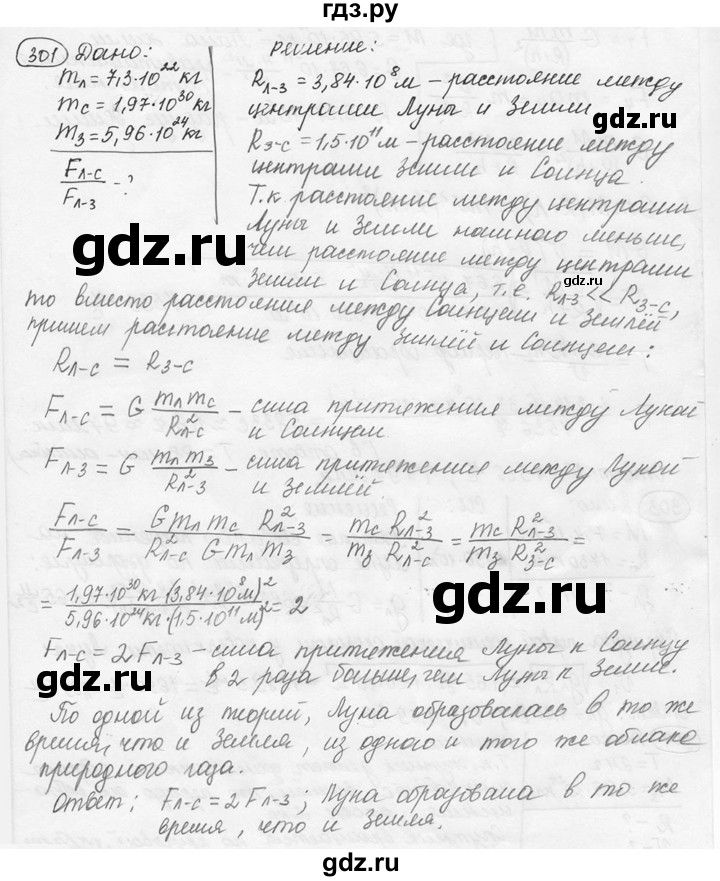 гдз.ру
301 Дано:
mл = 7,3·10²² кг
mс = 1,97·10³⁰ кг
mз = 5,96·10²⁴ кг
Fл-с/Fл-з - ?
решение:
Rл-з = 3,84·10⁸ м – расстояние между
центрами Луны и Земли
Rз-с = 1,5·10¹¹ м – расстояние между
центрами Земли и Солнца.
Т.к расстояние между центрами
Луны и Земли намного меньше,
чем расстояние между центрами
Земли и Солнца, т.е. Rл-з << Rз-с,
то вместо расстояния между Солнцем и Землёй
примем расстояние между Землёй и Солнцем:
Rл-с = Rз-с
Fл-с = G mл mс / Rл-с² – сила притяжения между Луной
и Солнцем
Fл-з = G mл mз / Rл-з² – сила притяжения между Луной
и Землёй
Fл-с/Fл-з = G mл mс Rл-з² / Rл-с² G mл mз = mс Rл-з² / mз Rл-с² = mс Rл-з² / mз Rз-с² =
= 1,97·10³⁰ кг·(3,84·10⁸ м)² / 5,96·10²⁴ кг·(1,5·10¹¹ м)² = 2
Fл-с = 2Fл-з – сила притяжения Луны к Солнцу
в 2 раза больше, чем Луны к Земле.
По одной из теорий, Луна образовалась в то же
время, что и Земля, из одного и того же облака
природного газа.
Ответ: Fл-с = 2Fл-з; Луна образована в то же
время, что и Земля.
gdz.ru
gdz.ru
gdz.ru
gdz.ru
gdz.ru
gdz.ru
gdz.ru